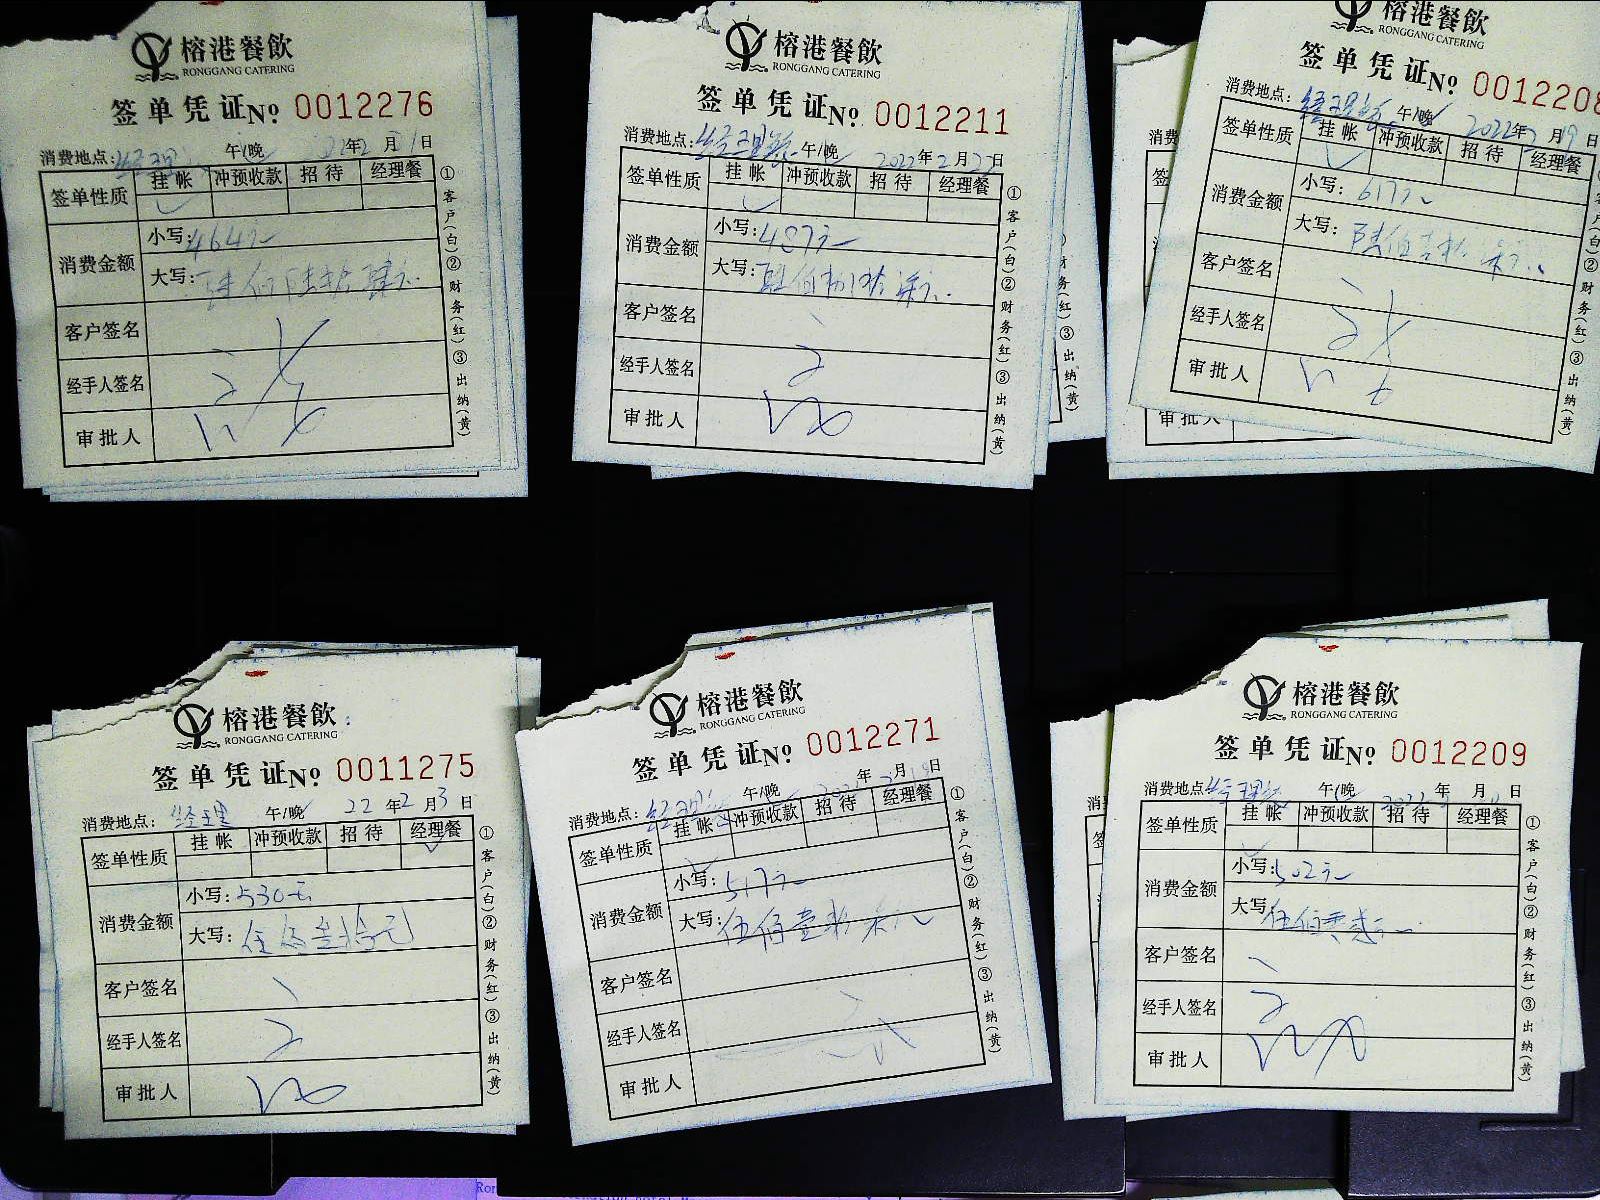 榕港餐飲
RONGGANG CATERING
签单凭证No 0012276
消费地点: 经理 午/晚 22年2月1日
签单性质 挂帐 冲预收款 招待 经理餐
消费金额 小写: 464元
大写: 肆佰陆拾肆元
客户签名
经手人签名
审批人
①客户(白)②财务(红)③出纳(黄)
榕港餐飲
RONGGANG CATERING
签单凭证No 0012211
消费地点: 经理餐 午/晚 2022年2月22日
签单性质 挂帐 冲预收款 招待 经理餐
消费金额 小写: 487元
大写: 肆佰捌拾柒元
客户签名
经手人签名
审批人
①客户(白)②财务(红)③出纳(黄)
榕港餐飲
RONGGANG CATERING
签单凭证No 0012208
消费地点: 经理餐 午/晚 2022年2月19日
签单性质 挂帐 冲预收款 招待 经理餐
消费金额 小写: 617元
大写: 陆佰壹拾柒元
客户签名
经手人签名
审批人
财务(红)③出纳(黄)
榕港餐飲
RONGGANG CATERING
签单凭证No 0011275
消费地点: 经理 午/晚 22年2月3日
签单性质 挂帐 冲预收款 招待 经理餐
消费金额 小写: 530元
大写: 伍佰叁拾元
客户签名
经手人签名
审批人
①客户(白)②财务(红)③出纳(黄)
榕港餐飲
RONGGANG CATERING
签单凭证No 0012271
消费地点: 经理餐 午/晚 2022年2月日
签单性质 挂帐 冲预收款 招待 经理餐
消费金额 小写: 517元
大写: 伍佰壹拾柒元
客户签名
经手人签名
审批人
①客户(白)②财务(红)③出纳(黄)
榕港餐飲
RONGGANG CATERING
签单凭证No 0012209
消费地点: 经理餐 午/晚 2022年 月 日
签单性质 挂帐 冲预收款 招待 经理餐
消费金额 小写: 502元
大写: 伍佰零贰元
客户签名
经手人签名
审批人
①客户(白)②财务(红)③出纳(黄)